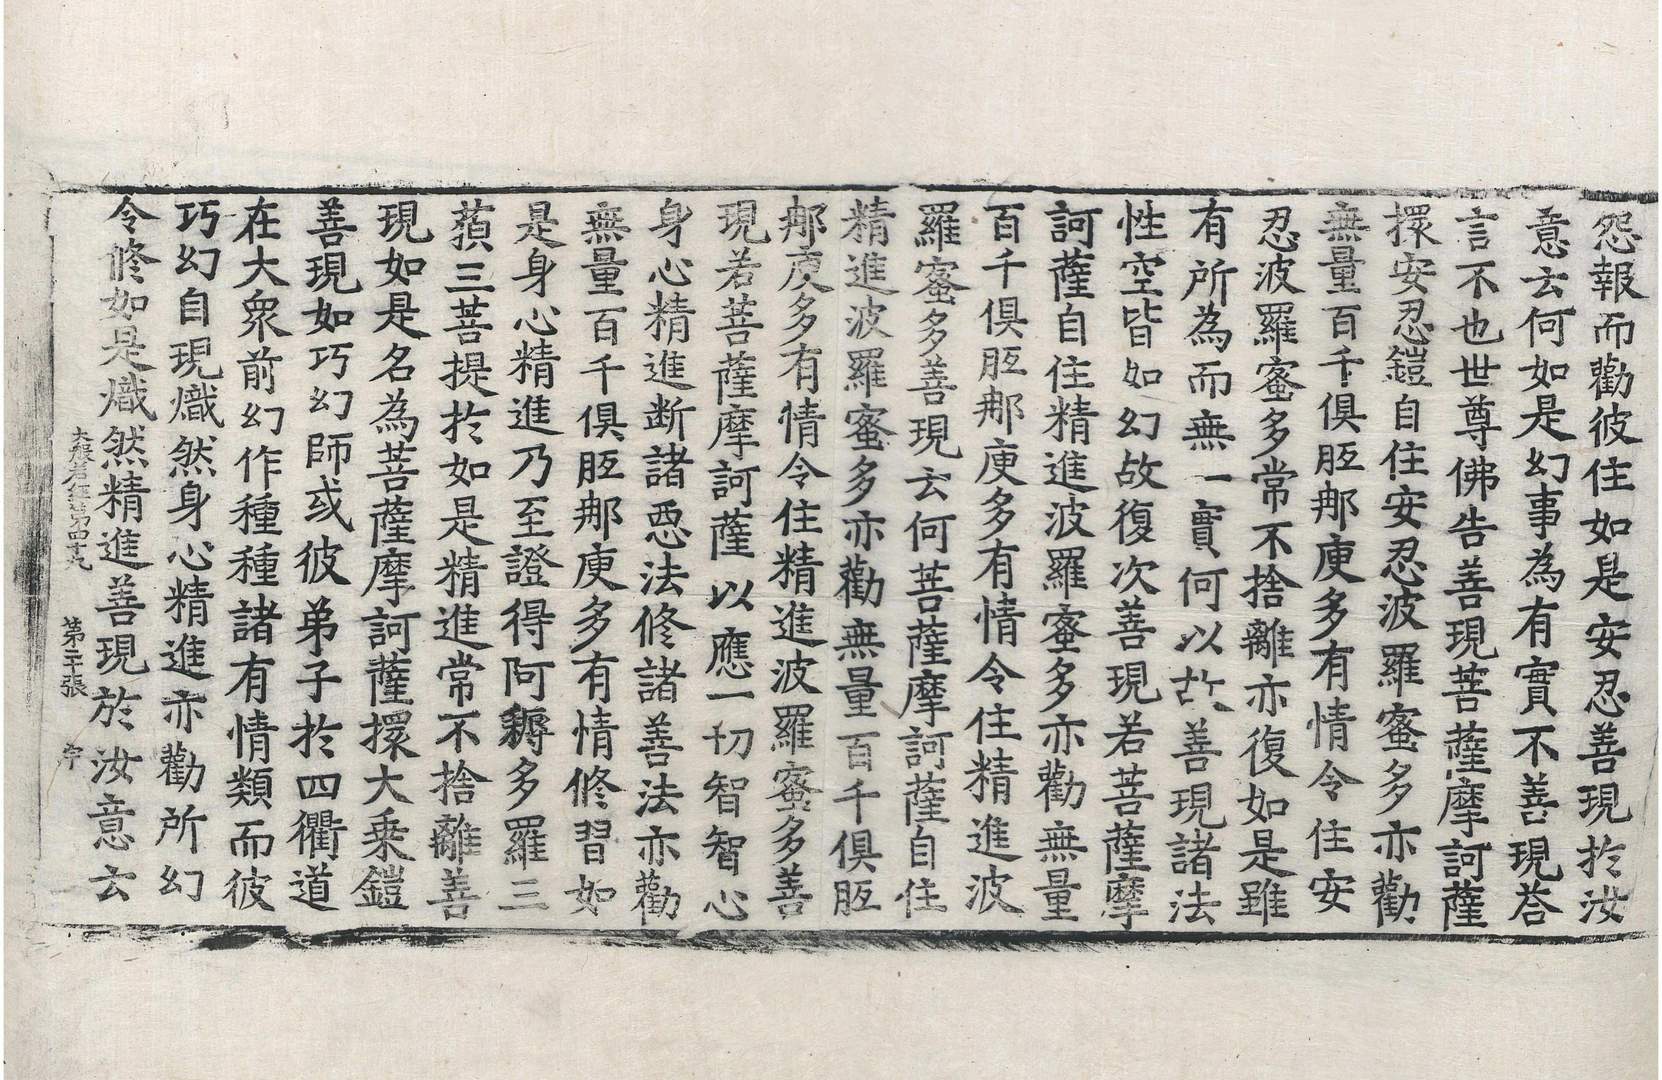 怨報而勸彼住如是安忍善現於汝
意云何如是幻事為有實不善現荅
言不也世尊佛告善現菩薩摩訶薩
擐安忍鎧自住安忍波羅蜜多亦勸
無量百千俱胝那庾多有情令住安
忍波羅蜜多常不捨離亦復如是雖
有所為而無一實何以故善現諸法
性空皆如幻故復次善現若菩薩摩
訶薩自住精進波羅蜜多亦勸無量
百千俱胝那庾多有情令住精進波
羅蜜多善現云何菩薩摩訶薩自住
精進波羅蜜多亦勸無量百千俱胝
那庾多有情令住精進波羅蜜多善
現若菩薩摩訶薩以應一切智智心
身心精進断諸惡法修諸善法亦勸
無量百千俱胝那庾多有情修習如
是身心精進乃至證得阿耨多羅三
藐三菩提於如是精進常不捨離善
現如是名為菩薩摩訶薩擐大乗鎧
善現如巧幻師或彼弟子於四衢道
在大衆前幻作種種諸有情類而彼
巧幻自現熾然身心精進亦勸所幻
令修如是熾然精進善現於汝意云
大般若經第四十九 第二十張